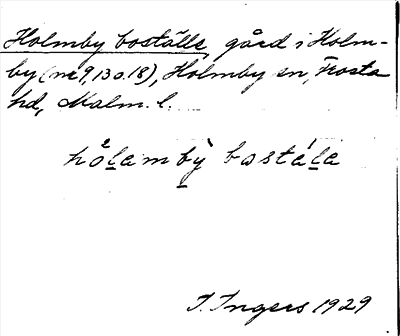 Holmby boställe, gård i Holm-
by (nr 9, 13 o. 18), Holmby sn, Frosta
hd, Malm. l.
hǒlambỳ bastála
I. Ingers 1929